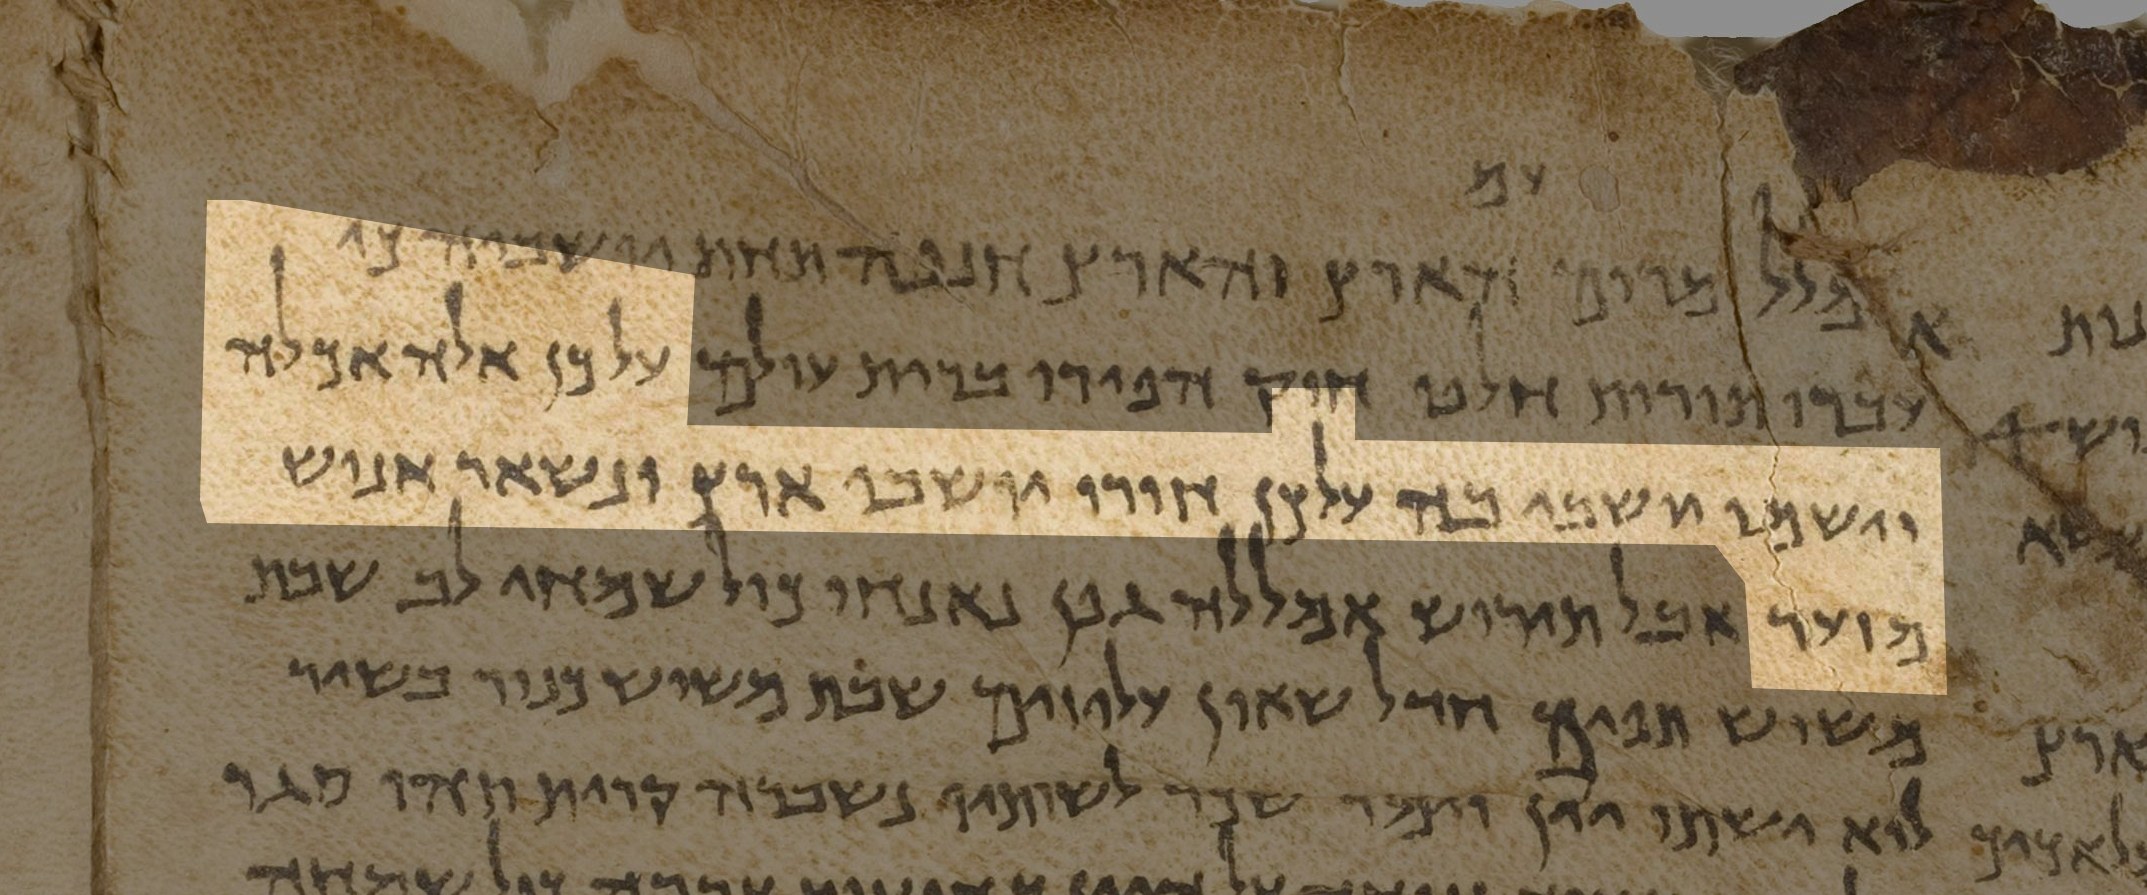 עם
אמלל מרום הארץ והארץ חנפה תחת יושביה כי
עברו תורות חלפו חוק הפירו ברית עולם על כן אלה אכלה
וישמו ישבי בה על כן חורו יושבי ארץ ונשאר אנוש
מזער אבל תירוש אמללה גפן נאנחו כול שמחי לב שבת
משוש תפים חדל שאון עליזים שבת משוש כנור בשיר
לוא ישתו יין וימר שכר לשותיו נשברה קרית תהו סגר
כול שמחה
ארץ